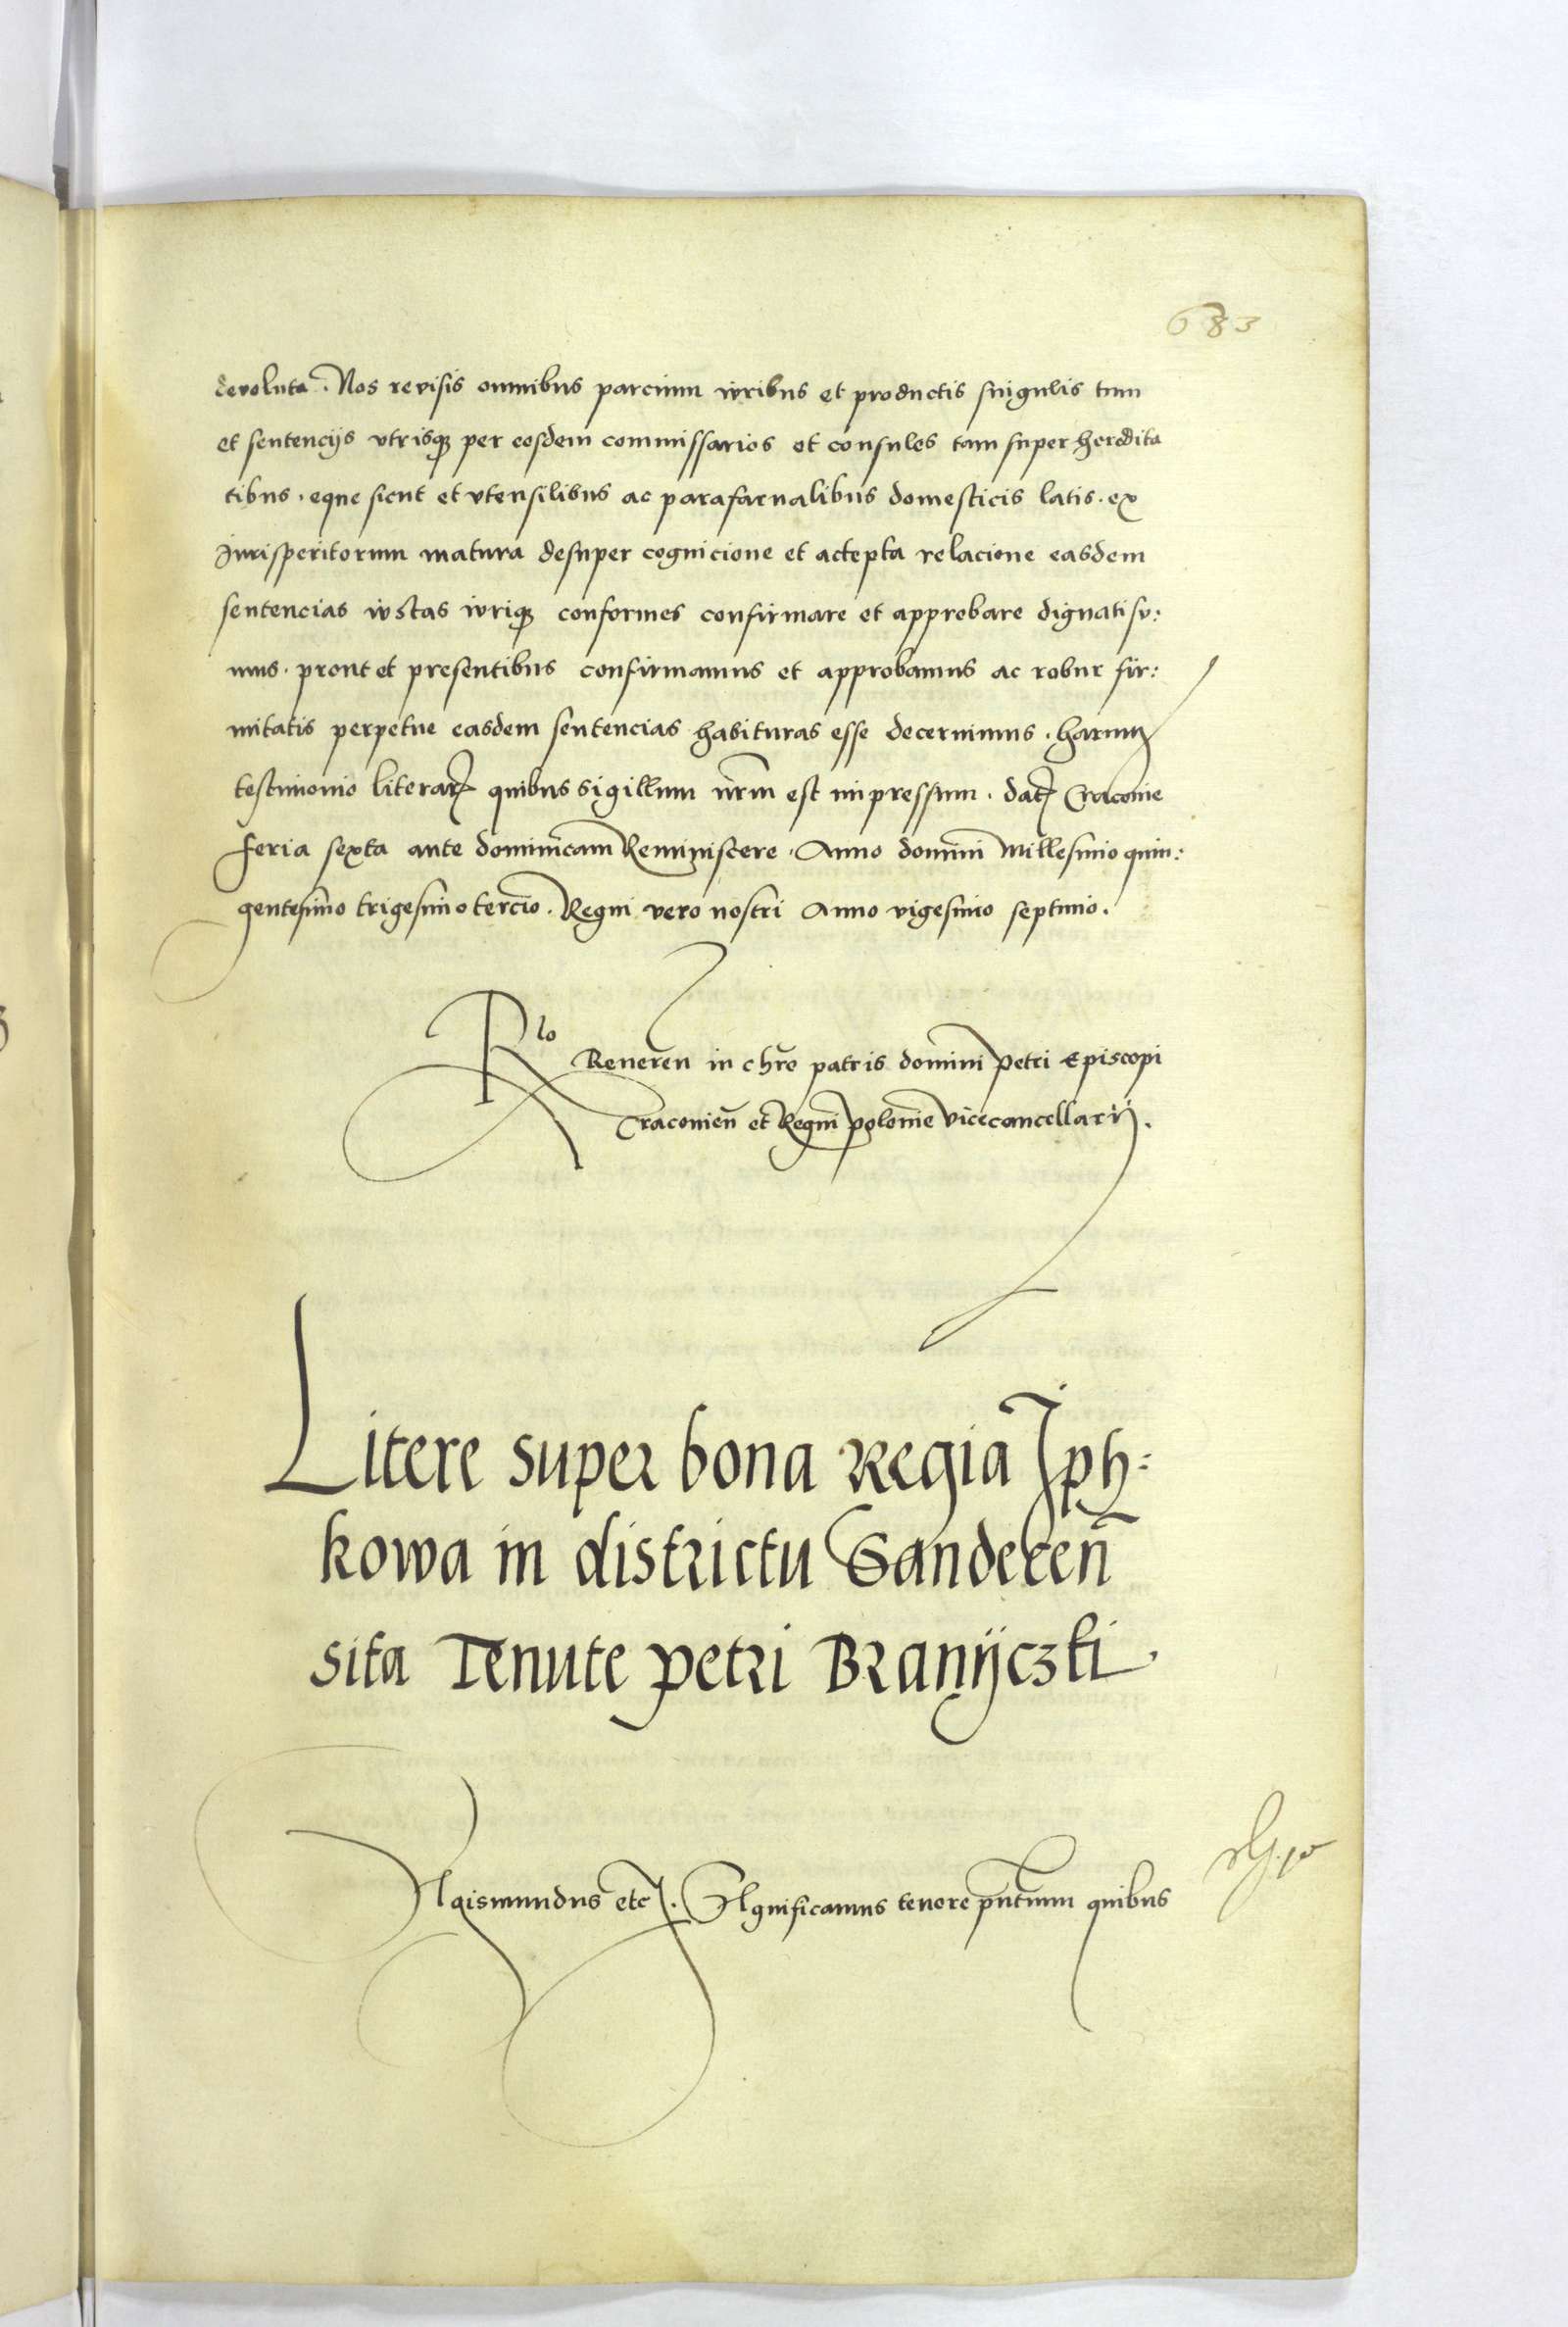 683
devoluta. Nos revisis omnibus parcium iuribus et productis singulis tum
et sentencijs vtrisque per eosdem commissarios et consules tam super heredita
tibus. eque sicut et vtensilibus ac parafarnalibus domesticis latis. ex
Jurisperitorum matura desuper cognicione et actepta relacione easdem
sentencias iustas iurique conformes confirmare et approbare dignati su:
mus. prout et presentibus confirmamus et approbamus ac robur fir:
mitatis perpetue easdem sentencias habituras esse decernimus. harum
testimonio literarꝝ quibus sigillum nr̄m est impressum. datꝭ Cracovie
feria sexta ante dominicam Reminiscere. Anno domini Millesimo quin:
gentesimo trigesimo tercio. Regni vero nostri Anno vigesimo septimo.
Rlo Reveren̄ in chr̄o patris domini Petri Episcopi
Cracovien̄ et Regni polonie vicecancellarij.
Litere super bona Regia Jph:
kowa in districtu Sandecen̄
sita Tenute petri Branijczki.
Sigismundus etcꝭ. Significamus tenore pn̄tium quibus